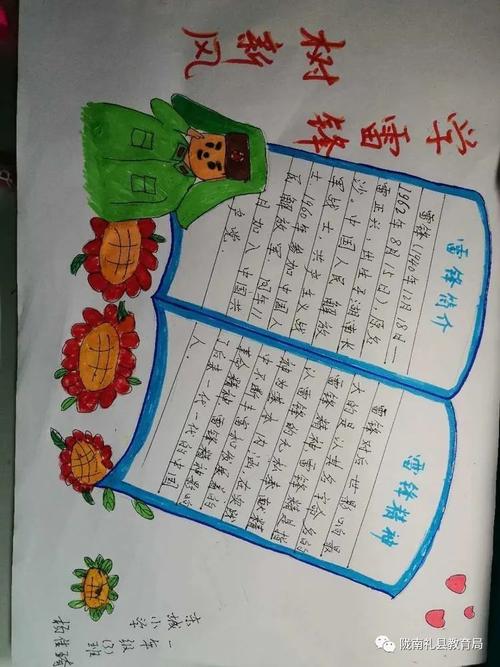 学雷锋
树新风
雷锋简介
雷锋(1940年12月18日—
1962年8月15日),原名
雷正兴,出生于湖南长
沙。中国人民解放
军战士、共产主义战
士,1960年参加中国人
民解放军,同年11
月加入中国共
产党。
雷锋精神
雷锋对后世影响最
大的是以其名字命名的
雷锋精神,雷锋精神是指
以雷锋的无私奉献精
神为基本内涵,在实践
中不断丰富和发展着的
革命精神,雷锋精神影响
了后来一代一代的中国
人。
东城小学
一年级(3)班
杨佳琦
陇南礼县教育局